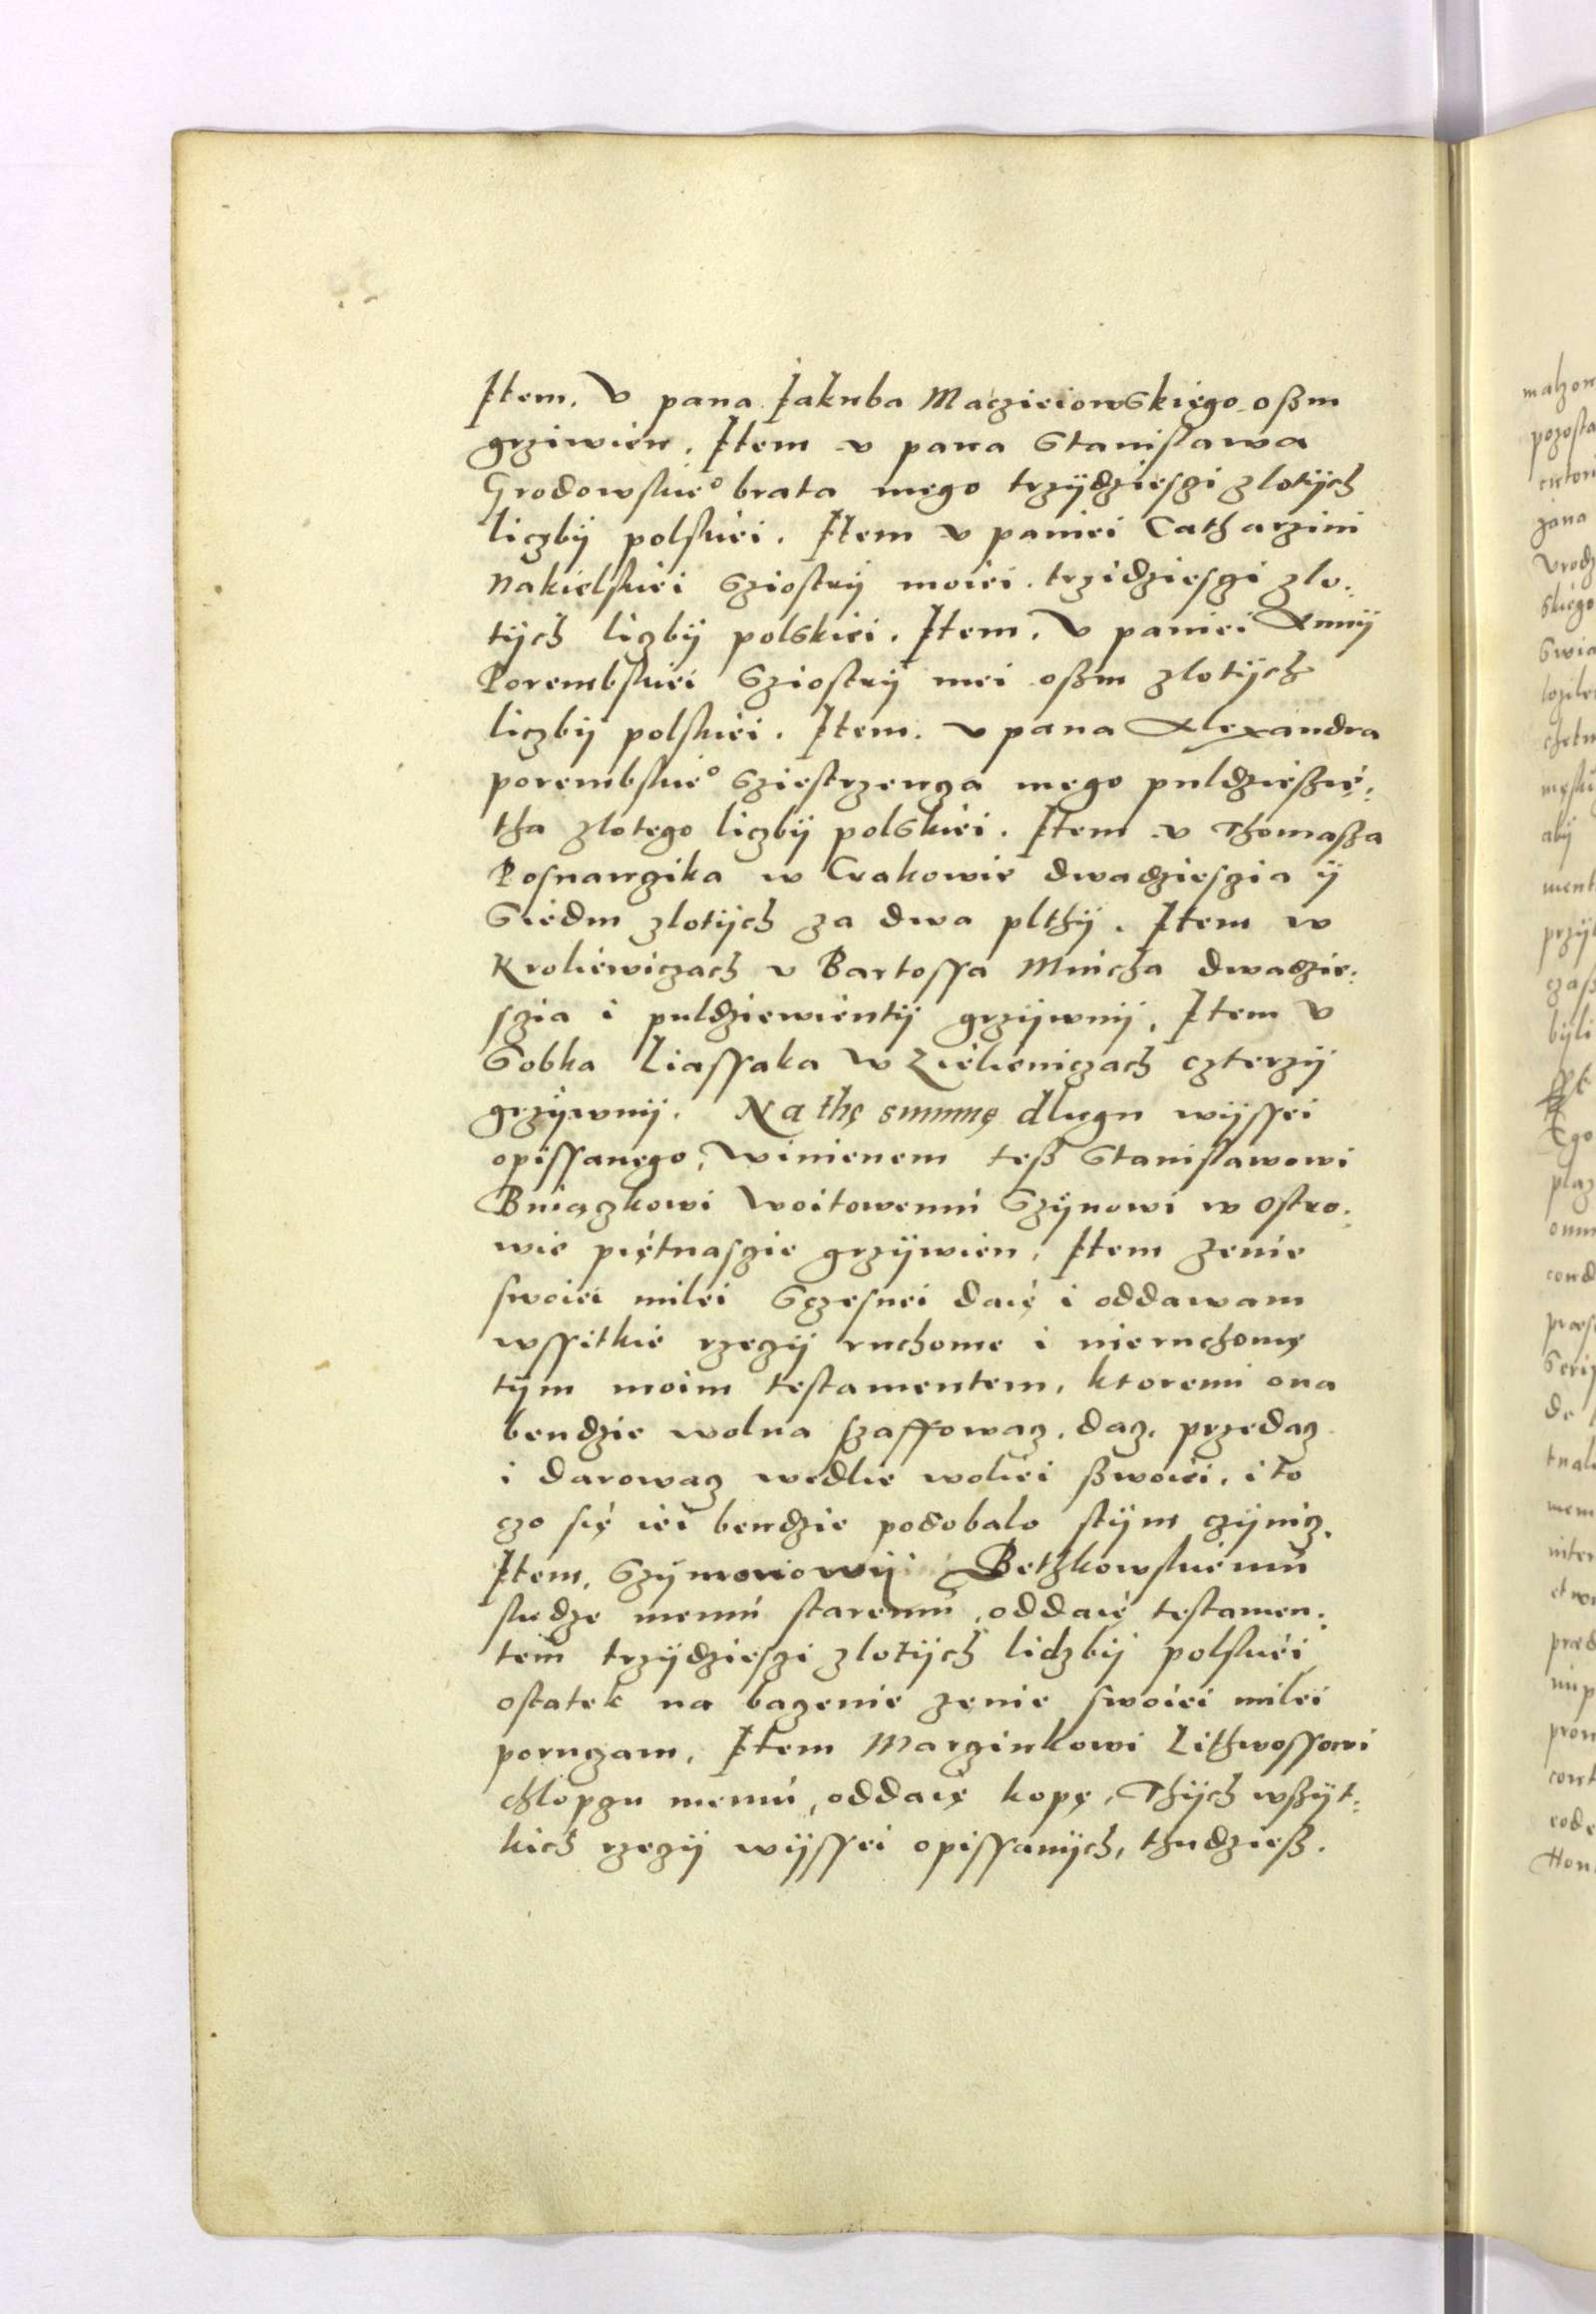 Item. V pana Iakuba Maczieiowskiego oßm
grziwien. Item v pana Stanislawa
Grodowskie° brata mego trzÿdzieszi zlotÿch
liczbÿ polskiei. Item v paniei Catharzini
Nakielskiei Sziostrÿ moiei. trzidzieszi zlo:
tÿch liczbÿ polskiei. Item. V paniei Annÿ
Porembskiei Sziostrÿ mei oßm zlotÿch
liczbÿ polskiei. Item. v pana Alexandra
porembskie° Sziestrzenza mego puldzießię:
tha zlotego liczbÿ polskiei. Item v Thomaßa
Posnanzika w Crakowie dwadzieszia ÿ
Siedm zlotÿch za dwa plthÿ. Item w
Kroliewiczach v Bartossa Mnicha dwadzie:
szia i puldziewientÿ grzÿwnÿ. Item V
Sobka Liassaka w Zielieniczach czterzÿ
grzÿwnÿ. Na thę summę dlugu wÿssei
opissanego, winienem teß Stanislawowi
Bniaczkowi Woitowemu Szÿnowi w Ostro:
wie piętnaszie grzÿwien. Item zenie
swoiei milei Sczesnei daię i oddawam
wssitkie rzeczÿ ruchome i nieruchomę
tÿm moim testamentem, ktoremi ona
bendzie wolna szaffowacz, dacz, przedacz
i darowacz wedlie woliei ßwoiei, i to
czo się iei bendzie podobalo stÿm czÿnicz.
Item, Szÿmonowÿ Bethkowskiemu
sludze memu staremu, oddaię testamen:
tem trzÿdzieszi zlotÿch lidzbÿ polskiei
ostatek na baczenie zenie swoiei milei
poruczam. Item Marczinkowi Lithwossowi
chlopczu memu, oddaię kopę, Thÿch wßÿt:
kich rzeczÿ wÿssei opissanÿch, thudzieß.